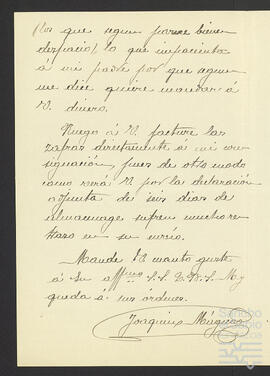 (Los que segun parece vienen
despacio), lo que impacienta
á mi padre por que segun
me dice quiere mandar á
V. dinero.
Ruego á V. facture las
zafras directamente á mi con-
signación, pues de otro modo
como verá V. por la declaración
adjunta de seis dias de
almacenage sufren mucho re-
traso en su envio.
Mande V. cuanto guste
á Su affmo S. S. Q. B. S. M. y
queda á sus órdenes.
Joaquin